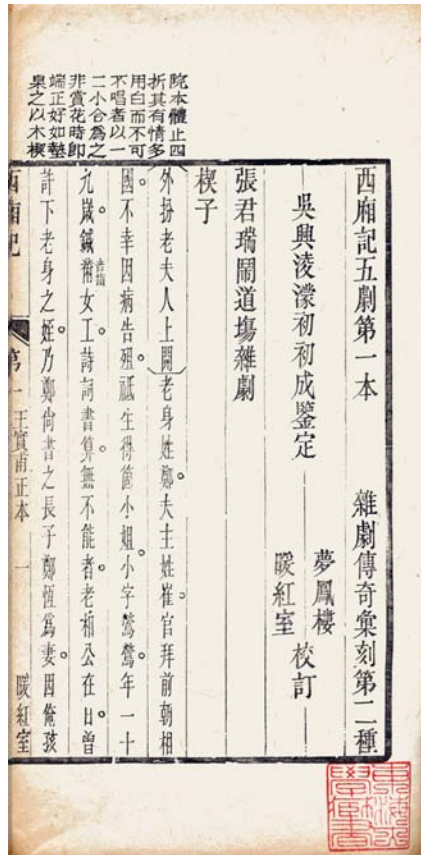 院本體止四
折其有情多
用白而不可
不唱者以一
二小令為之
非賞花時即
端正好如墊
桌之以木楔
西廂記五劇第一本　雜劇傳奇彙刻第二種
吳興淩濛初初成鑒定　夢鳳樓
暖紅室
校訂
張君瑞鬧道塲雜劇
楔子
外扮老夫人上開〕老身姓鄭。夫主姓崔。官拜前朝相
國。不幸因病告殂。祗生得箇小姐。小字鶯鶯。年一十
九歲。鍼黹音指女工。詩詞書算。無不能者。老相公在日。曾
許下老身之姪。乃鄭尙書之長子鄭恆爲妻。因俺孩
西廂記　第一　王實甫正本　一　暖紅室